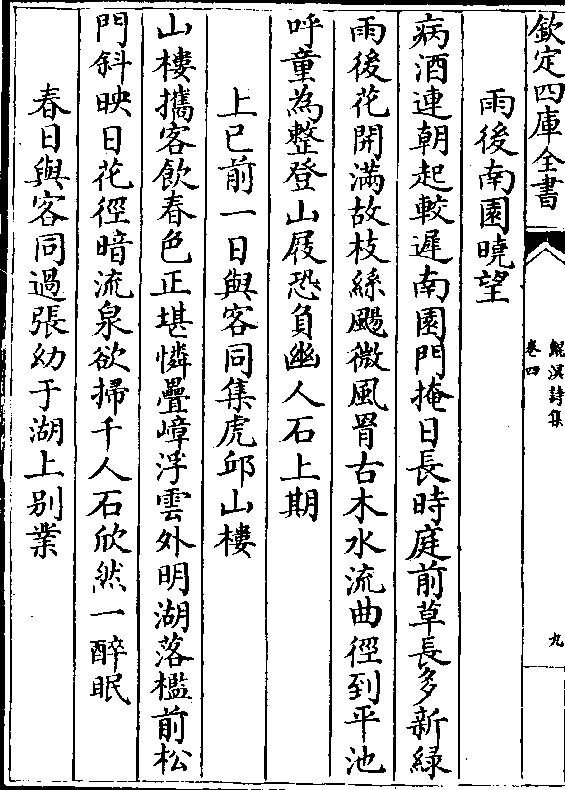 欽定四庫全書
鯤溟詩集
卷四
九
雨後南園曉望
病酒連朝起較遲南園門掩日長時庭前草長多新緑
雨後花開滿故枝絲颺微風罥古木水流曲徑到平池
呼童為整登山屐恐負幽人石上期
上巳前一日與客同集虎邱山樓
山樓攜客飲春色正堪憐疊嶂浮雲外明湖落檻前松
門斜映日花徑暗流泉欲掃千人石欣然一醉眠
春日與客同過張幼于湖上别業